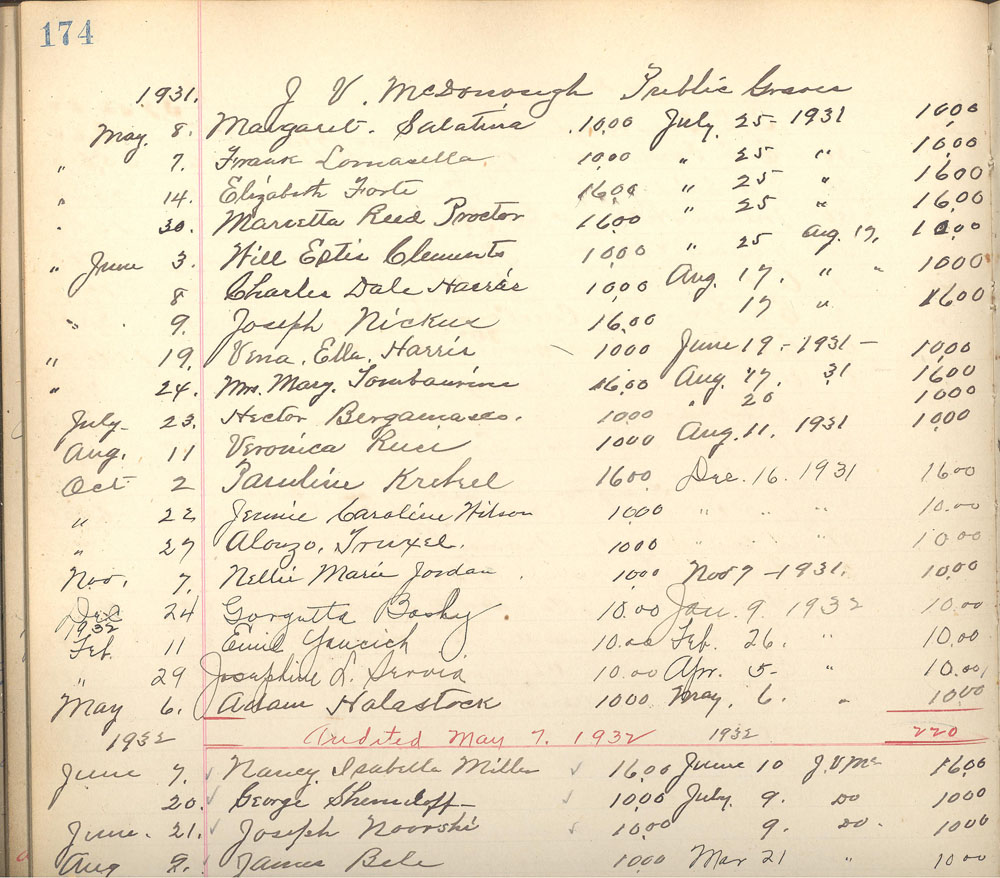 174
1931. J. V. McDonough Public Graves
May. 8. Margaret. Salatina 10.00 July. 25 - 1931 10.00
" 7. Frank Lomasella 10.00 " 25 " 10.00
" 14. Elizabeth Forte 16.00 " 25 " 16.00
" 30. Marietta Reed Proctor 16.00 " 25 " 16.00
" June 3. Will Eptis Clements 10.00 " 25 Aug. 17, 10.00
8 Charles Dale Harris 10.00 Aug. 17. " " 10.00
" 9. Joseph Nickus 16.00 17 " 16.00
" 19. Vena. Ella. Harris 10.00 June 19 - 1931 - 10.00
" 24. Mrs. Mary. 16.00 Aug. 17. 31 16.00
July - 23. Hector Bergamasco. 10.00 " 20 10.00
Aug. 11 Veronica Ruci 10.00 Aug. 11. 1931 10.00
Oct 2 Pauline Kretzel 16.00 Dec. 16. 1931 16.00
" 22 Jennie Caroline Wilson 10.00 " " " 10.00
" 27 Alonzo. Truxel. 10.00 " " " 10.00
Nov. 7. Nellie Marie Jordan. 10.00 Nov 7 - 1931. 10.00
Dec 24 10.00 Jan. 9. 1932 10.00
1932
Feb. 11 Emil Yancich 10.00 Feb. 26. " 10.00
" 29 Josephine L. Servia 10.00 Apr. 5- " 10.00
May 6. Adam Halastock 10.00 May. 6. " 10.00
1932 Audited May 7. 1932 1932 220
June 7. ✓ Nancy. Isabelle Miller ✓ 16.00 June 10 J.V.Mc 16.00
20. ✓ George ✓ 10.00 July. 9. DO 10.00
June. 21. ✓ Joseph Noorski ✓ 10.00 9. DO. 10.00
Aug 9. ✓ James Bele 10.00 Mar 21 " 10.00